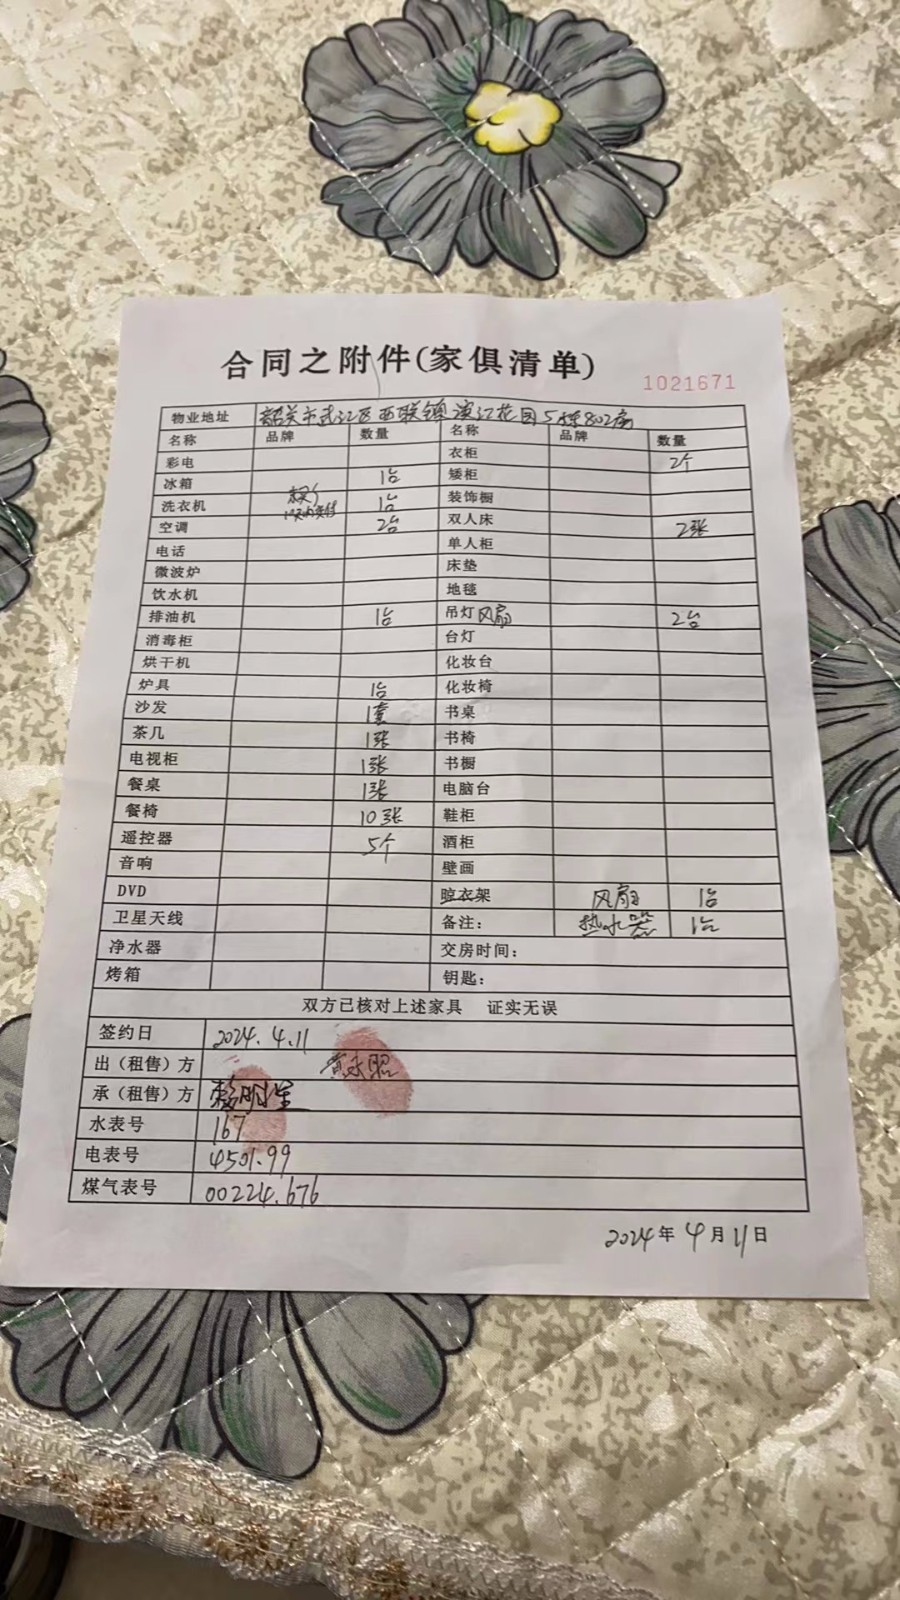 合同之附件(家俱清单)
1021671
物业地址 韶关市武江区西联镇滨江花园5栋802房
名称 品牌 数量 名称 品牌 数量
彩电 衣柜 2个
冰箱 1台 矮柜
洗衣机 1台 装饰橱
空调 2台 双人床 2张
电话 单人柜
微波炉 床垫
饮水机 地毯
排油机 1台 吊灯风扇 2台
消毒柜 台灯
烘干机 化妆台
炉具 1台 化妆椅
沙发 1套 书桌
茶几 1张 书椅
电视柜 1张 书橱
餐桌 1张 电脑台
餐椅 10张 鞋柜
遥控器 5个 酒柜
音响 壁画
DVD 晾衣架 风扇 1台
卫星天线 备注: 热水器 1台
净水器 交房时间:
烤箱 钥匙:
双方已核对上述家具 证实无误
签约日 2024.4.11
出(租售)方 黄永昭
承(租售)方 明生
水表号 167
电表号 4501.99
煤气表号 00224.676
2024年4月11日